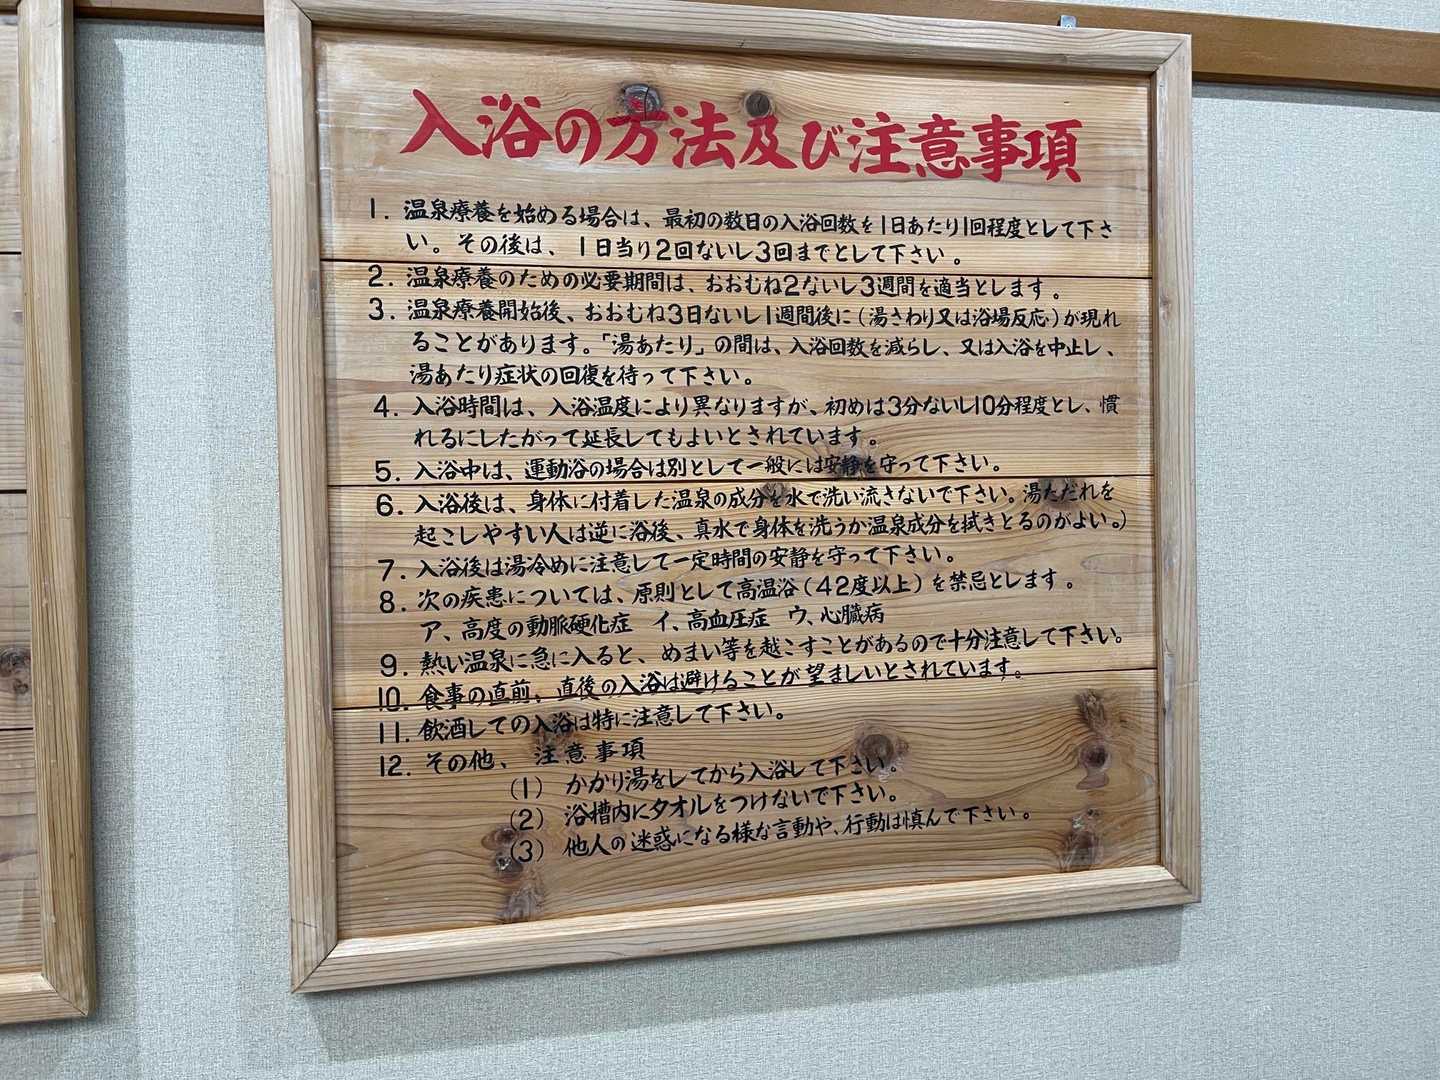 入浴の方法及び注意事項
1. 温泉療養を始める場合は、最初の数日の入浴回数を1日あたり1回程度として下さ
い。その後は、1日当り2回ないし3回までとして下さい。
2. 温泉療養のための必要期間は、おおむね2ないし3週間を適当とします。
3. 温泉療養開始後、おおむね3日ないし1週間後に(湯さわり又は浴場反応)が現れ
ることがあります。「湯あたり」の間は、入浴回数を減らし、又は入浴を中止し、
湯あたり症状の回復を待って下さい。
4. 入浴時間は、入浴温度により異なりますが、初めは3分ないし10分程度とし、慣
れるにしたがって延長してもよいとされています。
5. 入浴中は、運動浴の場合は別として一般には安静を守って下さい。
6. 入浴後は、身体に付着した温泉の成分を水で洗い流さないで下さい。湯ただれを
起こしやすい人は逆に浴後、真水で身体を洗うか温泉成分を拭きとるのがよい。)
7. 入浴後は湯冷めに注意して一定時間の安静を守って下さい。
8. 次の疾患については、原則として高温浴(42度以上)を禁忌とします。
ア、高度の動脈硬化症 イ、高血圧症 ウ、心臓病
9. 熱い温泉に急に入ると、めまい等を越こすことがあるので十分注意して下さい。
10. 食事の直前、直後の入浴は避けることが望ましいとされています。
11. 飲酒しての入浴は特に注意して下さい。
12. その他、注意事項
(1) かかり湯をしてから入浴して下さい。
(2) 浴槽内にタオルをつけないで下さい。
(3) 他人の迷惑になる様な言動や、行動は慎んで下さい。